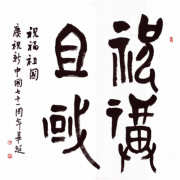 祝福
且或
祝福祖國
慶祝新中國七十一周年華誕